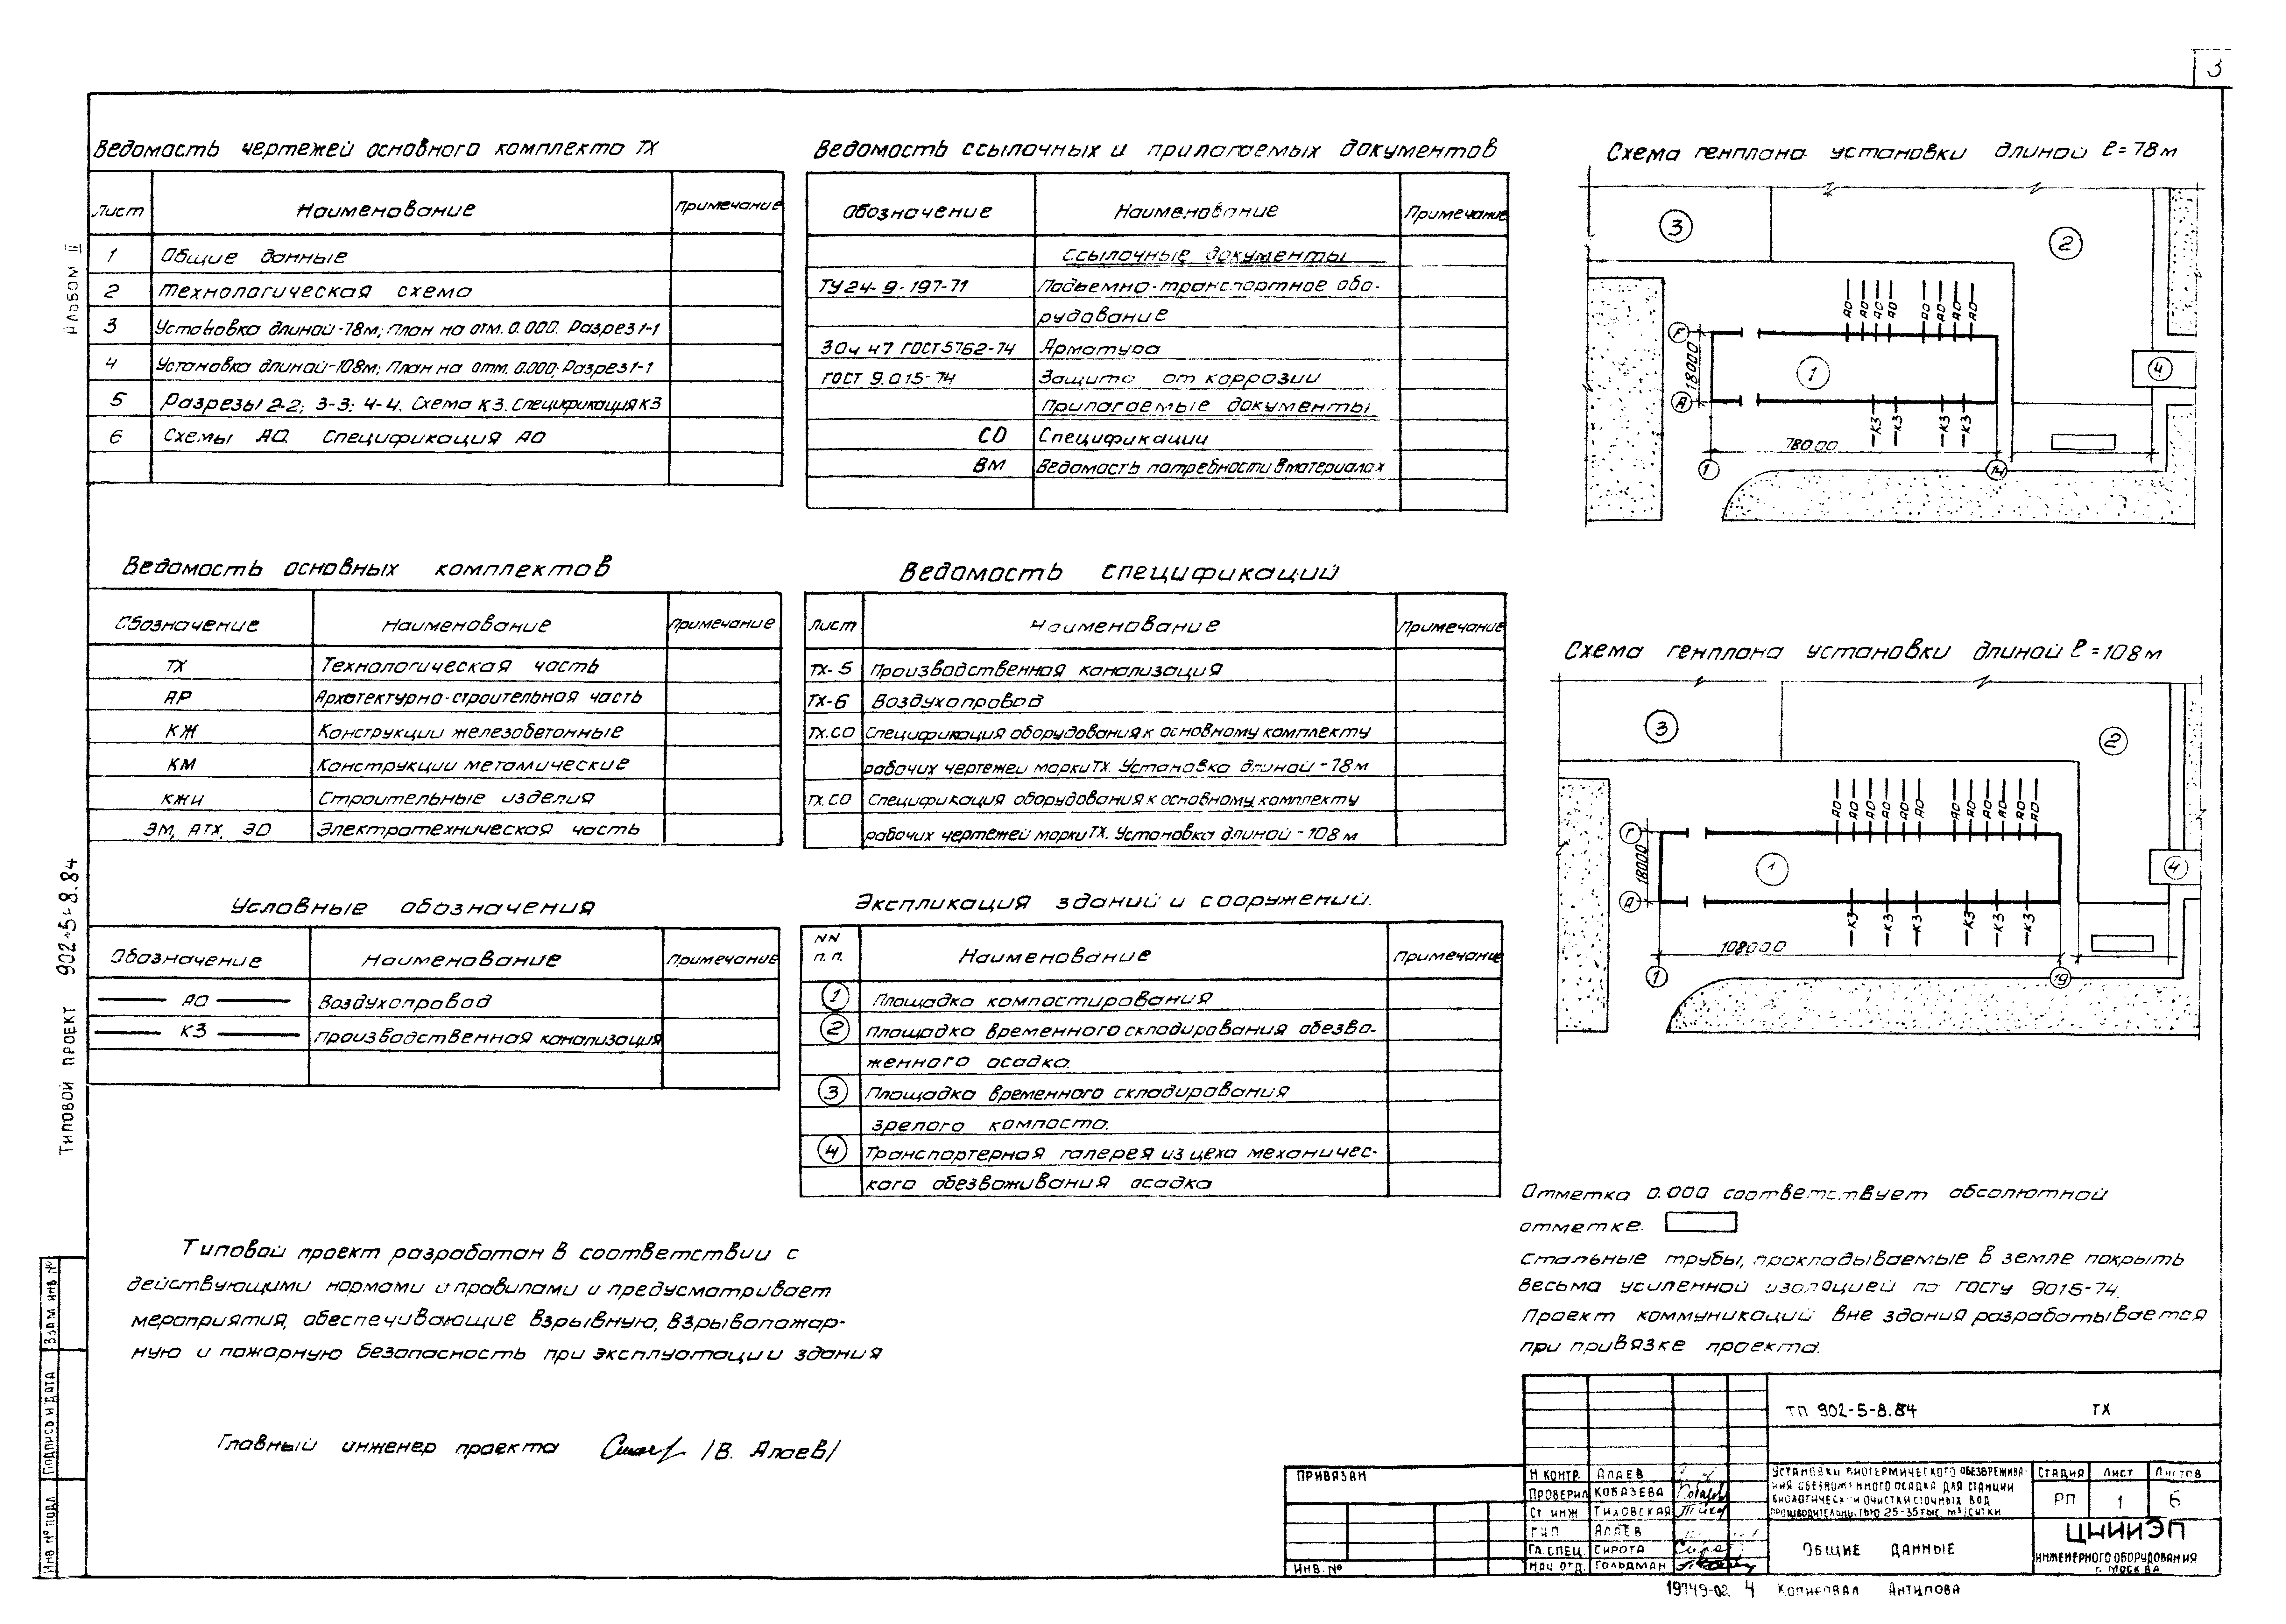 3
Альбом II
Типовой проект 902-5-8.84
Ведомость чертежей основного комплекта ТХ
Лист Наименование Примечание
1 Общие данные
2 Технологическая схема
3 Установка длиной-78м; План на отм. 0.000. Разрез 1-1
4 Установка длиной-108м; План на отм. 0.000; Разрез 1-1
5 Разрезы 2-2; 3-3; 4-4. Схема К3. Спецификация К3
6 Схемы АО. Спецификация АО
Ведомость ссылочных и прилагаемых документов
Обозначение Наименование Примечание
Ссылочные документы
ТУ 24-9-197-71 Подъемно-транспортное обо-
рудование
30ч 47 ГОСТ 5762-74 Арматура
ГОСТ 9.015-74 Защита от коррозии
Прилагаемые документы
СО Спецификации
ВМ Ведомость потребности в материалах
Схема генплана установки длиной ℓ=78м
3
2
АО АО АО АО АО АО АО АО
Г
18000
1
4
А
К3 К3 К3 К3
78000
1
14
Ведомость основных комплектов
Обозначение Наименование Примечание
ТХ Технологическая часть
АР Архитектурно-строительная часть
КЖ Конструкции железобетонные
КМ Конструкции металлические
КЖИ Строительные изделия
ЭМ, АТХ, ЭО Электротехническая часть
Ведомость спецификаций
Лист Наименование Примечание
ТХ-5 Производственная канализация
ТХ-6 Воздухопровод
ТХ.СО Спецификация оборудования к основному комплекту
рабочих чертежей марки ТХ. Установка длиной -78м
ТХ.СО Спецификация оборудования к основному комплекту
рабочих чертежей марки ТХ. Установка длиной -108 м
Схема генплана установки длиной ℓ=108м
3
2
АО АО АО АО АО АО АО АО АО АО АО АО
Г
18000
1
4
А
К3 К3 К3 К3 К3 К3
108000
1
19
Условные обозначения
Обозначение Наименование Примечание
АО Воздухопровод
К3 Производственная канализация
Экспликация зданий и сооружений.
NN п.п. Наименование Примечание
1 Площадка компостирования
2 Площадка временного складирования обезво-
женного осадка.
3 Площадка временного складирования
зрелого компоста.
4 Транспортерная галерея из цеха механичес-
кого обезвоживания осадка
Отметка 0.000 соответствует абсолютной
отметке.
Стальные трубы, прокладываемые в земле покрыть
весьма усиленной изоляцией по ГОСТу 9015-74.
Проект коммуникаций вне здания разрабатывается
при привязке проекта.
Типовой проект разработан в соответствии с
действующими нормами и правилами и предусматривает
мероприятия, обеспечивающие взрывную, взрывопожар-
ную и пожарную безопасность при эксплуатации здания
Главный инженер проекта /В. Алаев/
Взам инв №
Подпись и дата
Инв № подл
Привязан
Инв. №
ТП 902-5-8.84 ТХ
Н контр. Алаев
Проверил Кобазева
Ст инж Тиховская
ГИП Алаев
Гл. спец. Сирота
Нач отд. Гольдман
Установки биотермического обезврежива-
ния обезвоженного осадка для станции
биологической очистки сточных вод
производительностью 25-35 тыс. м³/сутки
Стадия Лист Листов
РП 1 6
Общие данные
ЦНИИЭП
инженерного оборудования
г. Москва
19749-02 4 Копировал Антипова